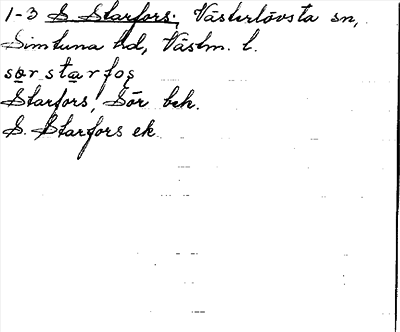 1-3 S Starfors, Västerlövsta sn,
Simtuna hd, Västm. l.
Starfors, Sör bek.
S. Starfors ek